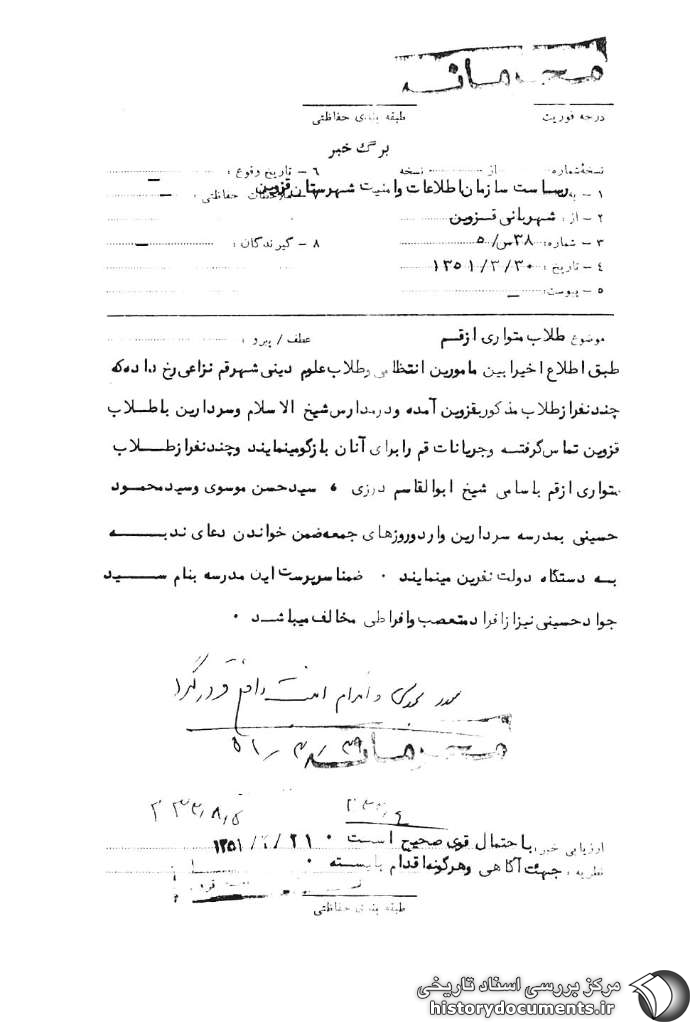 محرمانه
درجه فوریت
طبقه بندی حفاظتی
برگ خبر
نسخه شماره: از نسخه
۱ - به ریاست سازمان اطلاعات وامنیت شهرستان قزوین
۲ - از: شهربانی قزوین
۳ - شماره: ۳۸س/۵
۴ - تاریخ: ۱۳۵۱/۳/۳۰
۵ - پیوست: -
۶ - تاریخ وقوع: -
۷ - ملاحظات حفاظتی: -
۸ - گیرندگان: -
موضوع طلاب متواری ازقم عطف / پیرو:
طبق اطلاع اخیرا بین مامورین انتظامی وطلاب علوم دینی شهرقم نزاعی رخ داده که
چندنفراز طلاب مذکور بقزوین آمده ودرمدارس شیخ الاسلام وسردارین باطلاب
قزوین تماس گرفته وجریانات قم رابرای آنان بازگومینمایند وچندنفراز طلاب
متواری ازقم باسامی شیخ ابوالقاسم درزی ، سیدحسن موسوی وسیدمحمود
حسینی بمدرسه سردارین واردوروزهای جمعه ضمن خواندن دعای ندبه
به دستگاه دولت نفرین مینمایند . ضمنا سرپرست این مدرسه بنام سید
جوادحسینی نیزازافراد متعصب وافراطی مخالف میباشد .
محرمانه
ارزیابی خبر: باحتمال قوی صحیح است .
نظریه: جهت آگاهی وهرگونه اقدام بایسته .
طبقه بندی حفاظتی
مرکز بررسی اسناد تاریخی
historydocuments.ir